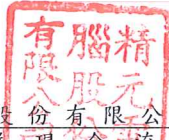 精元
腦股
有限公
股份有限公